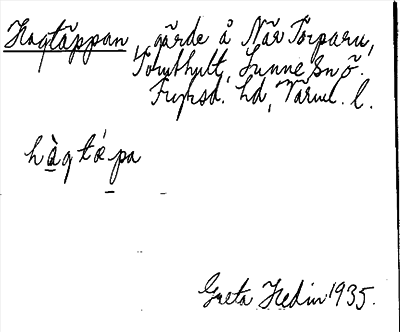 Hagtäppan, gärde å När Torparn,
Torvthult, Sunne sn ö.
Fryksd. hd, Värml. l.
hàgtǽpa
Greta Hedin 1935.